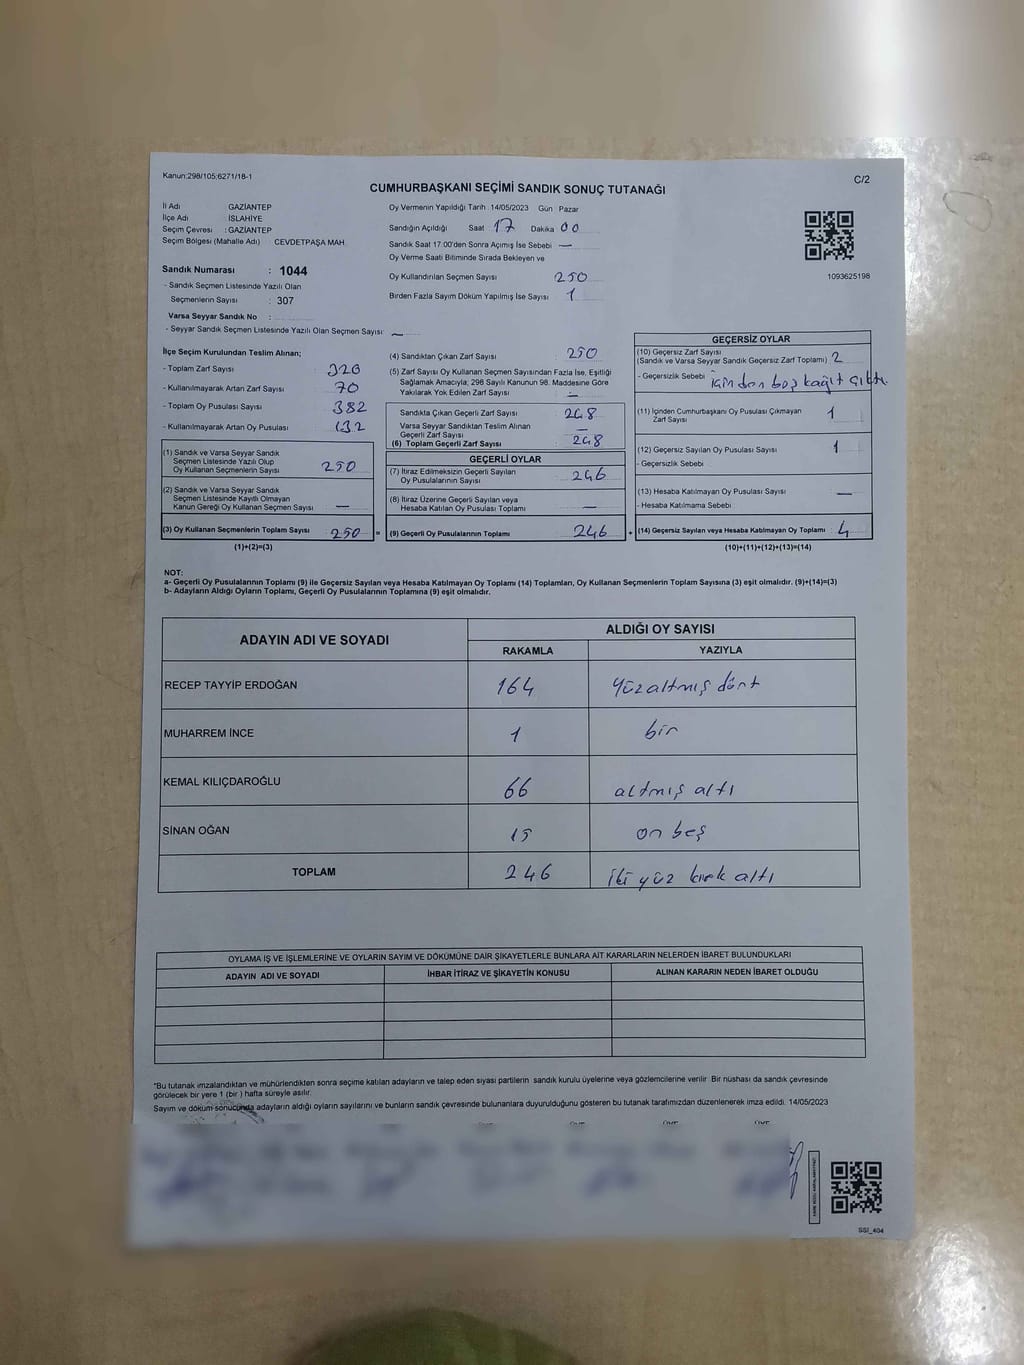 Kanun:298/105;6271/18-1
C/2
CUMHURBAŞKANI SEÇİMİ SANDIK SONUÇ TUTANAĞI
İl Adı GAZİANTEP
İlçe Adı İSLAHİYE
Seçim Çevresi : GAZİANTEP
Seçim Bölgesi (Mahalle Adı) CEVDETPAŞA MAH.
Sandık Numarası : 1044
- Sandık Seçmen Listesinde Yazılı Olan
Seçmenlerin Sayısı : 307
Varsa Seyyar Sandık No :
- Seyyar Sandık Seçmen Listesinde Yazılı Olan Seçmen Sayısı: —
Oy Vermenin Yapıldığı Tarih :14/05/2023 Gün : Pazar
Sandığın Açıldığı Saat : 17 Dakika 00
Sandık Saat 17:00'den Sonra Açımış İse Sebebi —
Oy Verme Saati Bitiminde Sırada Bekleyen ve
Oy Kullandırılan Seçmen Sayısı 250
Birden Fazla Sayım Döküm Yapılmış İse Sayısı 1
1093625198
İlçe Seçim Kurulundan Teslim Alınan;
- Toplam Zarf Sayısı : 320
- Kullanılmayarak Artan Zarf Sayısı : 70
- Toplam Oy Pusulası Sayısı : 382
- Kullanılmayarak Artan Oy Pusulası : 132
(1) Sandık ve Varsa Seyyar Sandık
Seçmen Listesinde Yazılı Olup
Oy Kullanan Seçmenlerin Sayısı : 250
(2) Sandık ve Varsa Seyyar Sandık
Seçmen Listesinde Kayıtlı Olmayan
Kanun Gereği Oy Kullanan Seçmen Sayısı : —
(3) Oy Kullanan Seçmenlerin Toplam Sayısı : 250
(1)+(2)=(3)
(4) Sandıktan Çıkan Zarf Sayısı : 250
(5) Zarf Sayısı Oy Kullanan Seçmen Sayısından Fazla İse, Eşitliği
Sağlamak Amacıyla, 298 Sayılı Kanunun 98. Maddesine Göre
Yakılarak Yok Edilen Zarf Sayısı : —
Sandıkta Çıkan Geçerli Zarf Sayısı : 248
Varsa Seyyar Sandıktan Teslim Alınan
Geçerli Zarf Sayısı : —
(6) Toplam Geçerli Zarf Sayısı : 248
GEÇERLİ OYLAR
(7) İtiraz Edilmeksizin Geçerli Sayılan
Oy Pusulalarının Sayısı : 246
(8) İtiraz Üzerine Geçerli Sayılan veya
Hesaba Katılan Oy Pusulası Toplamı : —
= (9) Geçerli Oy Pusulalarının Toplamı : 246
GEÇERSİZ OYLAR
(10) Geçersiz Zarf Sayısı
(Sandık ve Varsa Seyyar Sandık Geçersiz Zarf Toplamı) : 2
- Geçersizlik Sebebi : içinden boş kağıt çıktı.
(11) İçinden Cumhurbaşkanı Oy Pusulası Çıkmayan
Zarf Sayısı : 1
(12) Geçersiz Sayılan Oy Pusulası Sayısı : 1
- Geçersizlik Sebebi
(13) Hesaba Katılmayan Oy Pusulası Sayısı : —
- Hesaba Katılmama Sebebi :
+ (14) Geçersiz Sayılan veya Hesaba Katılmayan Oy Toplamı : 4
(10)+(11)+(12)+(13)=(14)
NOT:
a- Geçerli Oy Pusulalarının Toplamı (9) ile Geçersiz Sayılan veya Hesaba Katılmayan Oy Toplamı (14) Toplamları, Oy Kullanan Seçmenlerin Toplam Sayısına (3) eşit olmalıdır. (9)+(14)=(3)
b- Adayların Aldığı Oyların Toplamı, Geçerli Oy Pusulalarının Toplamına (9) eşit olmalıdır.
ADAYIN ADI VE SOYADI ALDIĞI OY SAYISI
RAKAMLA YAZIYLA
RECEP TAYYİP ERDOĞAN 164 Yüzaltmış dört
MUHARREM İNCE 1 bir
KEMAL KILIÇDAROĞLU 66 altmış altı
SİNAN OĞAN 15 on beş
TOPLAM 246 iki yüz kırk altı
OYLAMA İŞ VE İŞLEMLERİNE VE OYLARIN SAYIM VE DÖKÜMÜNE DAİR ŞİKAYETLERLE BUNLARA AİT KARARLARIN NELERDEN İBARET BULUNDUKLARI
ADAYIN ADI VE SOYADI İHBAR İTİRAZ VE ŞİKAYETİN KONUSU ALINAN KARARIN NEDEN İBARET OLDUĞU
*Bu tutanak imzalandıktan ve mühürlendikten sonra seçime katılan adayların ve talep eden siyasi partilerin sandık kurulu üyelerine veya gözlemcilerine verilir. Bir nüshası da sandık çevresinde
görülecek bir yere 1 (bir ) hafta süreyle asılır.
Sayım ve döküm sonucunda adayların aldığı oyların sayılarını ve bunların sandık çevresinde bulunanlara duyurulduğunu gösteren bu tutanak tarafımızdan düzenlenerek imza edildi. 14/05/2023
SSİ_404